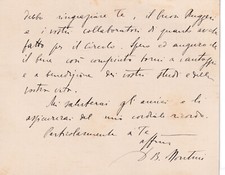 debbo ringraziare Te, il buon Ruggeri
e i vostri collaboratori di quanto avete
fatto per il Circolo. Spero ed auguro che
il bene così compiuto torni a vantaggio
e a benedizione dei vostri studi e della
vostra vita.
Mi saluterai gli amici e li
assicurerai del mio cordiale ricordo.
Particolarmente a Te
aff.mo
G B. Montini